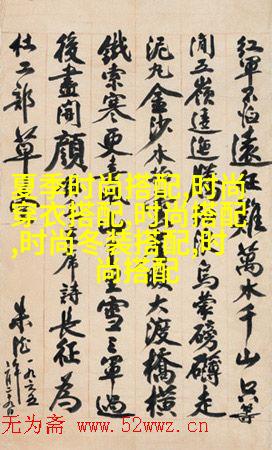 紅軍不怕遠征難萬水千山只等
闲五嶺逶迤烏蒙磅礴走
泥丸金沙水大渡橋橫
鐵索寒更喜雪三軍過
後盡開顏席詩長征為
杜工部草堂
朱德
一九六五
夏季时尚搭配,时尚
穿衣搭配,时尚搭配
,时尚冬装搭配,时
尚搭配
无为斋 www.52wwz.cn